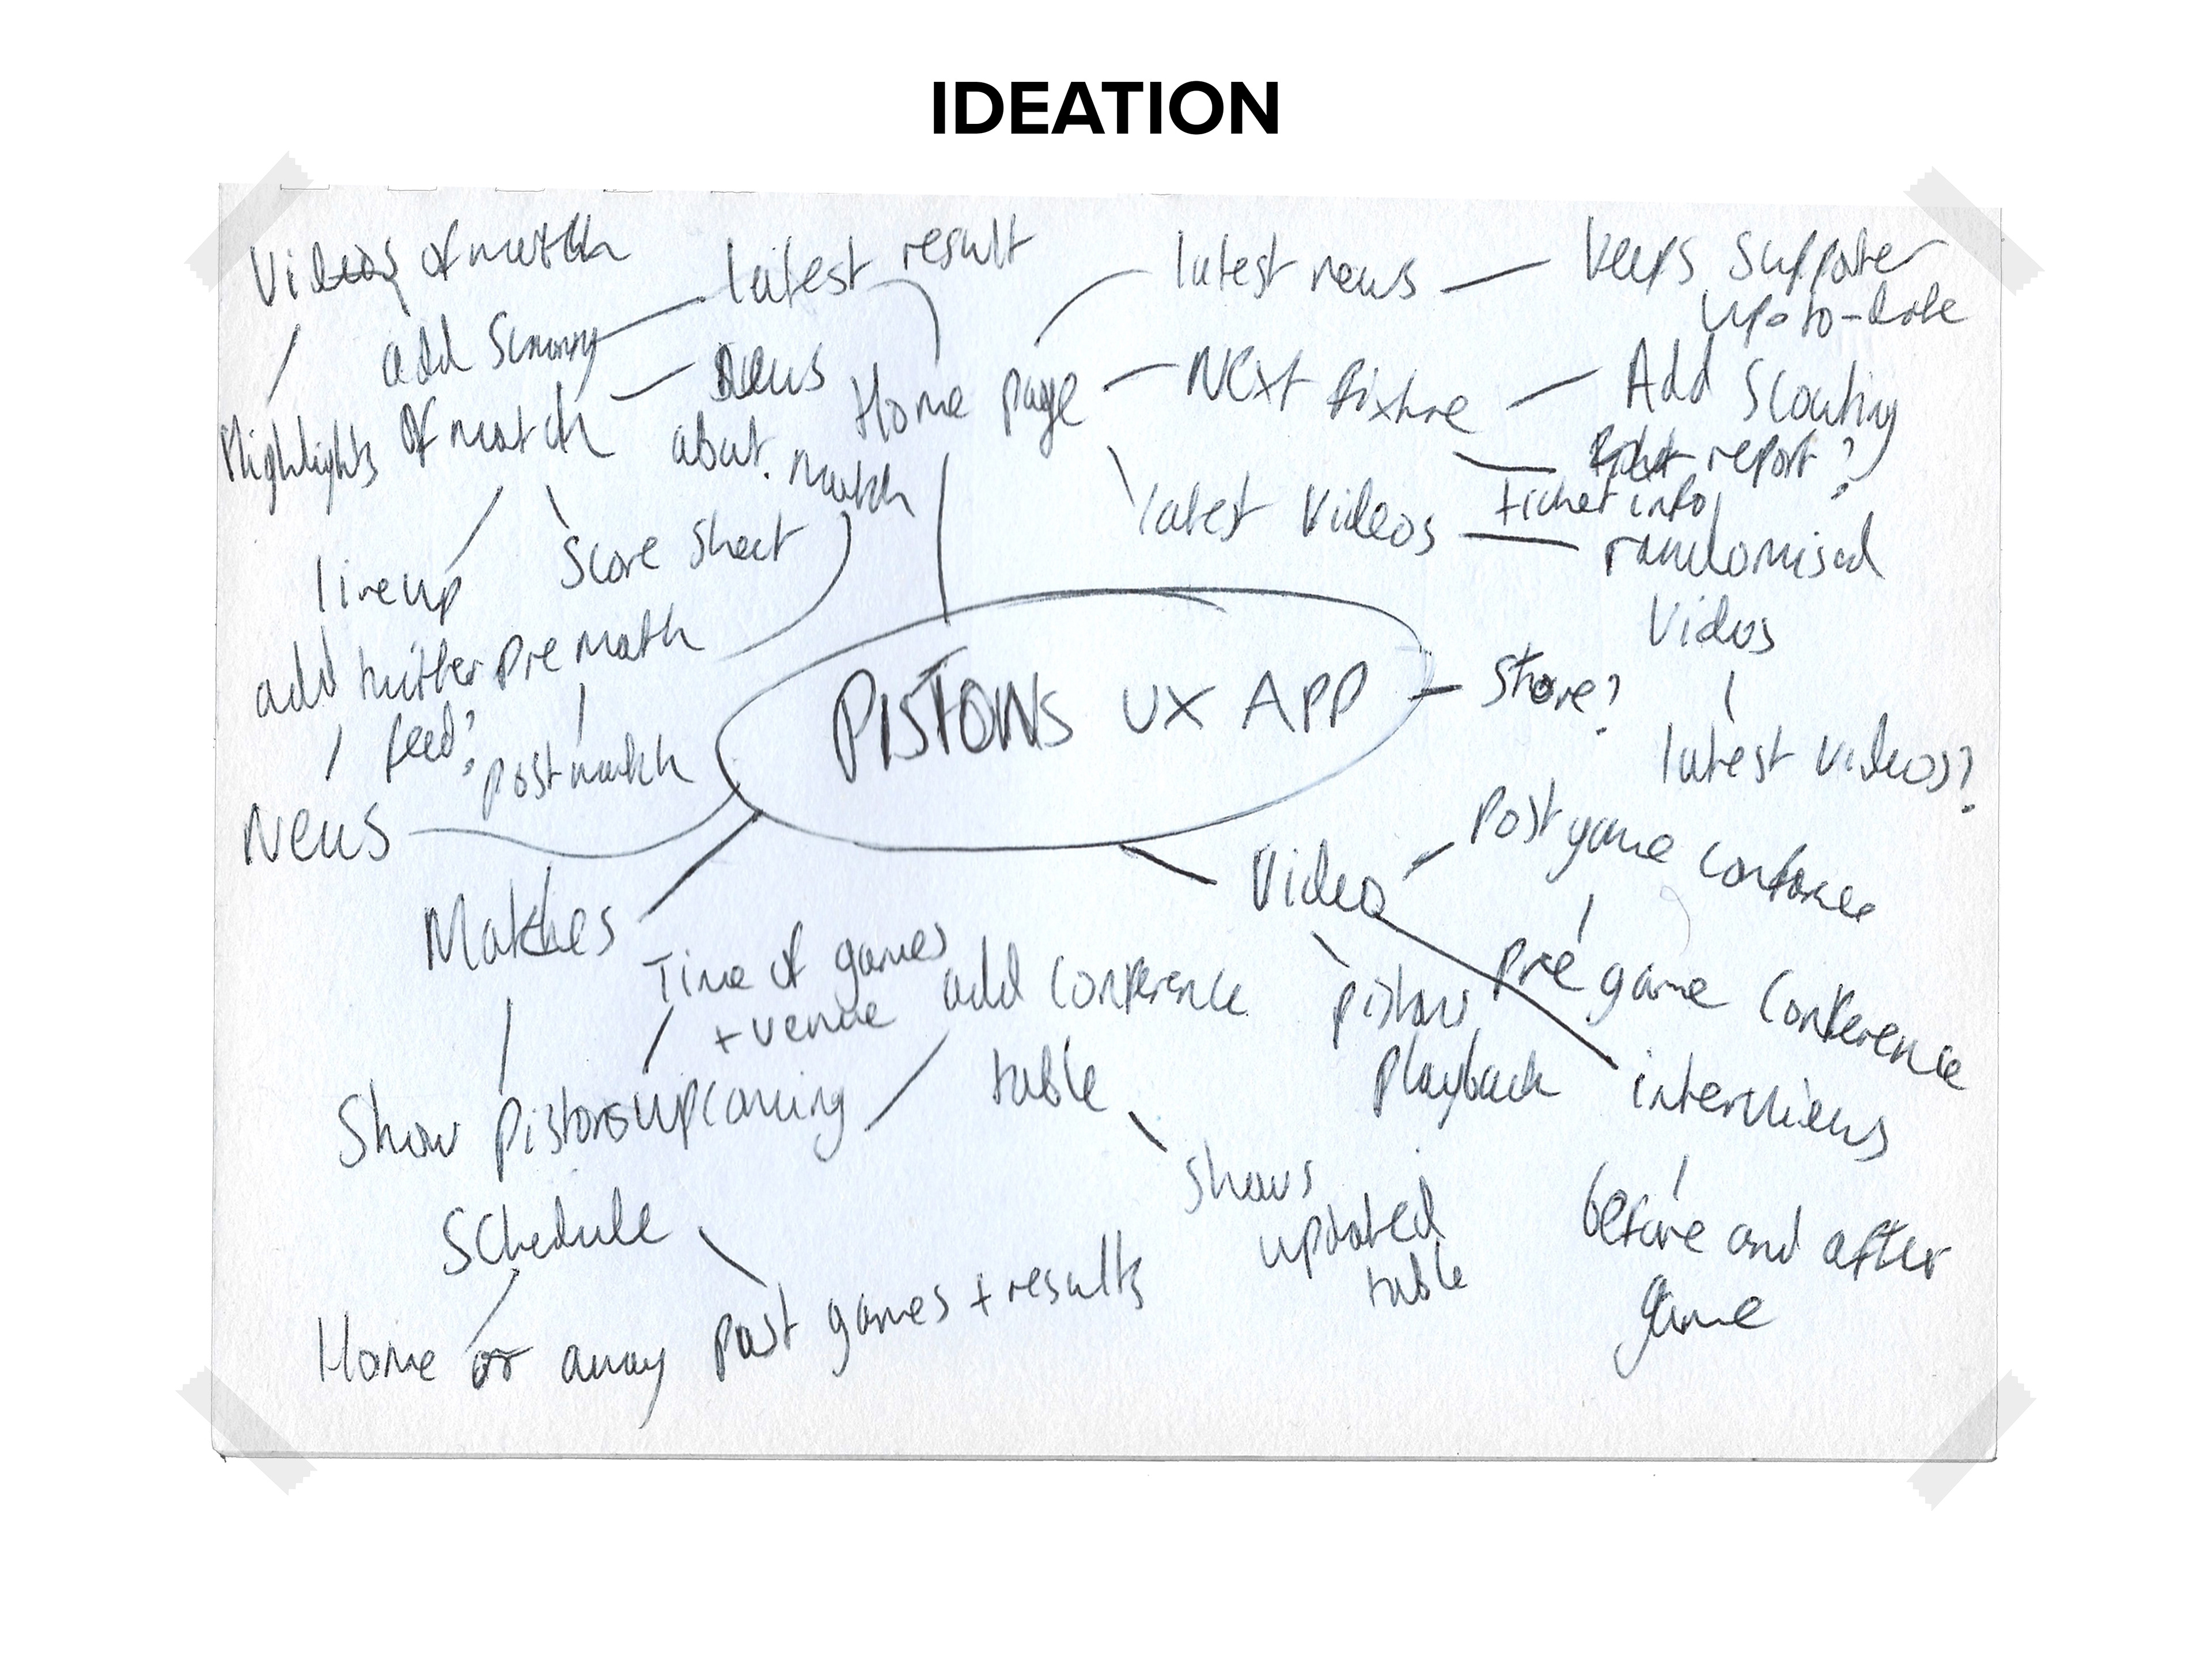 IDEATION
Videos of match
latest result
latest news
keeps supporter
up-to-date
add
of match
News
about match
Home page
Next fixture
Add Scouting
report?
Highlights
Score sheet
latest videos
ticket info
randomised
videos
lineup
add twitter
feed?
pre match
post match
PISTONS UX APP
Store?
latest videos?
News
Matches
Video
Post game conference
pre game conference
Time of games
+ venue
add conference
table
pistons
playback
interviews
Show pistons upcoming
Schedule
shows
updated
table
before and after
game
Home or away
past games + results